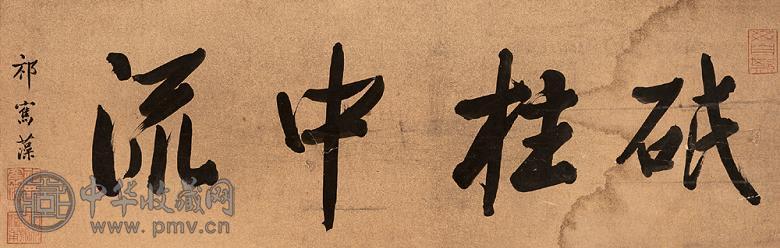 砥柱中流
祁寯藻
中华收藏网
www.pmv.cn